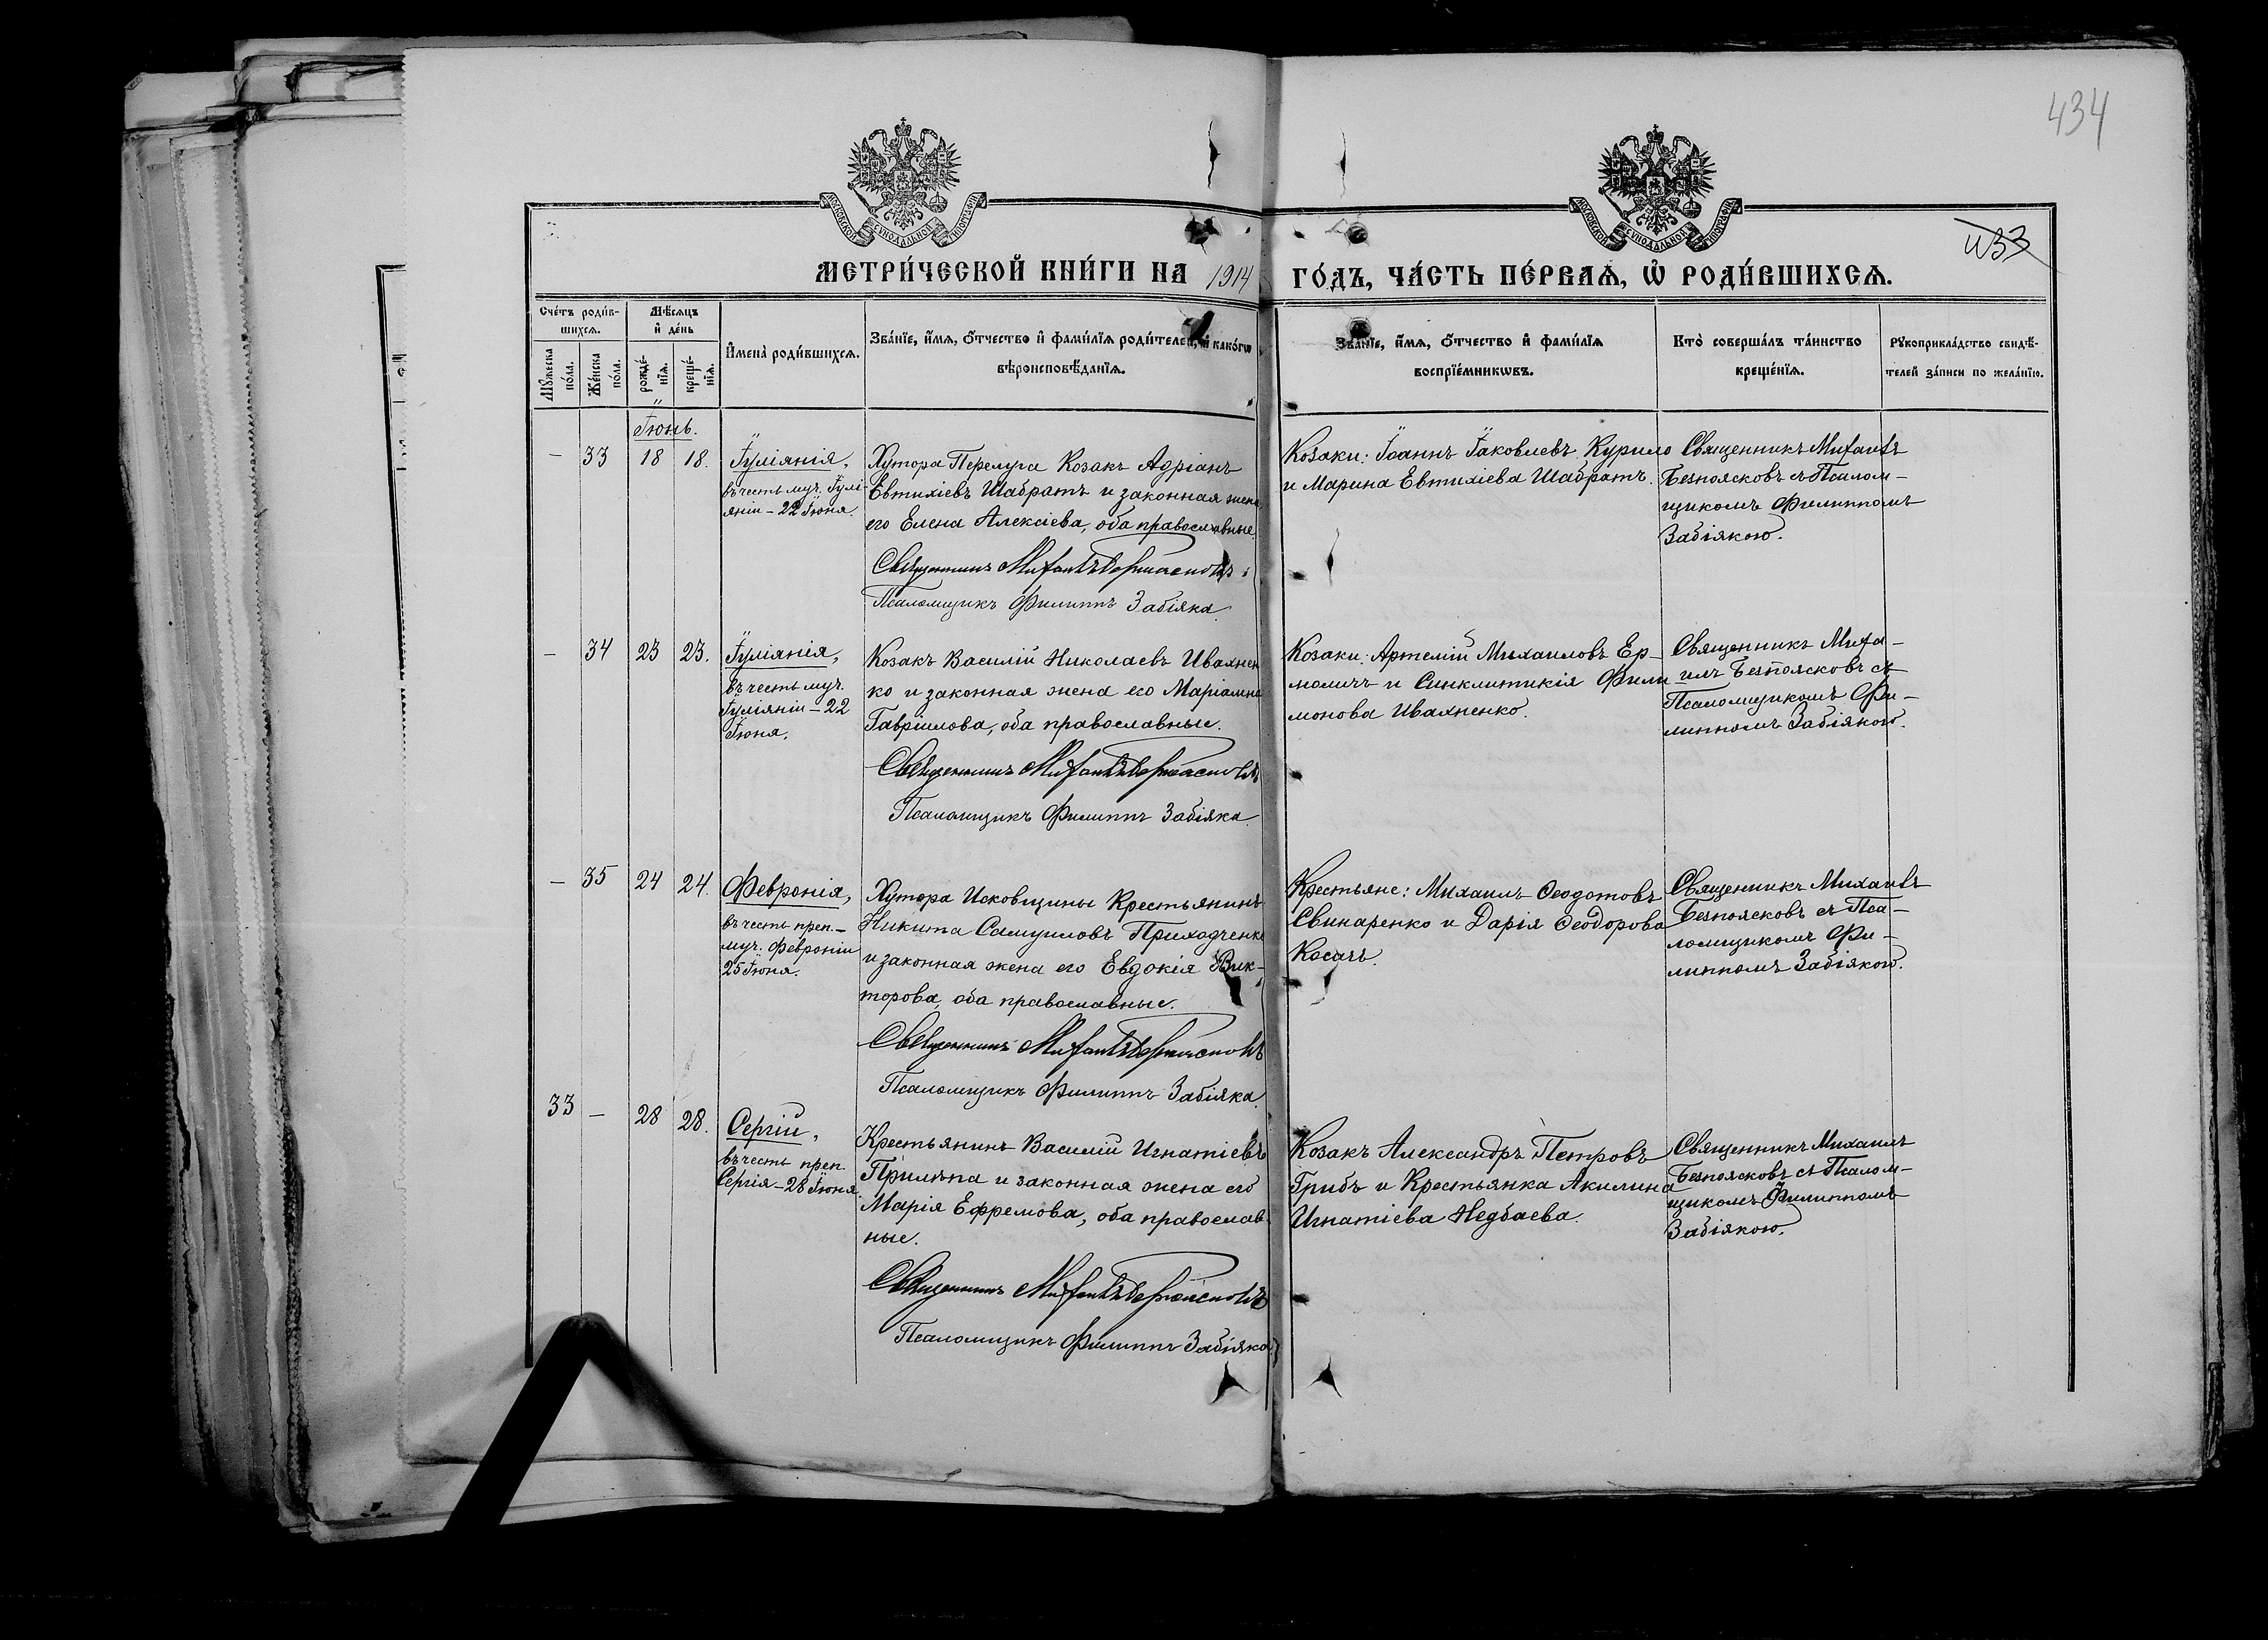 434
МОСКОВСКОЙ СУНОДАЛЬНОЙ ТИПОГРАФІИ
МОСКОВСКОЙ СУНОДАЛЬНОЙ ТИПОГРАФІИ
433
МЕТРИ́ЧЕСКОЙ КНИ́ГИ НА 1914 ГО́ДЪ, ЧА́СТЬ ПЕ́РВАѦ, Ѡ҆ РОДИ́ВШИХСѦ.
Сче́тъ роди́в-
шихсѧ.
Мꙋжеска по́ла.
Же́нска по́ла.
Мѣ́сѧцъ
и҆ де́нь
рожде́-
нїѧ.
креще́-
нїѧ.
И҆мена̀ роди́вшихсѧ.
Зва́нїе, и҆́мѧ, ѻ҆́тчество и҆ фами́лїѧ роди́телей, и҆ како́гѡ
вѣроисповѣ́данїѧ.
Зва́нїе, и҆́мѧ, ѻ҆́тчество и҆ фами́лїѧ
воспрїе́мникѡвъ.
Кто̀ соверша́лъ та́инство
креще́нїѧ.
Рꙋкоприкла́дство свидѣ́-
телей за́писи по жела́нїю.
Іюнь.
— 33 18 18.
Іуліянія,
въ честь муч. Іулі-
яніи – 22 Іюня.
Хутора Перелуга Козакъ Адріанъ
Евтихіевъ Шабратъ и законная жена
его Елена Алексіева, оба православные.
Священникъ Михаилъ Безпоясковъ
Псаломщикъ Филиппъ Забіяка.
Козаки: Іоаннъ Іаковлевъ Курило
и Марина Евтихіева Шабратъ.
Священникъ Михаилъ
Безпоясковъ съ Псалом-
щикомъ Филиппомъ
Забіякою.
— 34 23 23.
Іуліянія,
въ честь муч.
Іуліяніи – 22
Іюня.
Козакъ Василій Николаевъ Ивахнен
ко и законная жена его Маріамна
Гавріилова, оба православные.
Священникъ Михаилъ Безпоясковъ
Псаломщикъ Филиппъ Забіяка.
Козаки: Артемій Михаиловъ Ер-
моличъ и Синклитикія Фили
монова Ивахненко.
Священникъ Миха-
илъ Безпоясковъ съ
Псаломщикомъ Фи-
липпомъ Забіякою.
— 35 24 24.
Февронія,
въ честь преп.-
муч. Февроніи
25 Іюня.
Хутора Исковщины Крестьянинъ
Никита Самуиловъ Приходченко
и законная жена его Евдокія Вик-
торова, оба православные.
Священникъ Михаилъ Безпоясковъ
Псаломщикъ Филиппъ Забіяка.
Крестьяне: Михаилъ Ѳеодотовъ
Свинаренко и Дарія Ѳеодорова
Косачъ.
Священникъ Михаилъ
Безпоясковъ съ Пса-
ломщикомъ Фи-
липпомъ Забіякою.
33 — 28 28.
Сергій,
въ честь преп.
Сергія – 28 Іюня.
Крестьянинъ Василій Игнатіевъ
Прилѣпа и законная жена его
Марія Ефремова, оба православ-
ные.
Священникъ Михаилъ Безпоясковъ
Псаломщикъ Филиппъ Забіяка.
Козакъ Александръ Петровъ
Грибъ и Крестьянка Акилина
Игнатіева Недбаева.
Священникъ Михаилъ
Безпоясковъ съ Псалом-
щикомъ Филиппомъ
Забіякою.